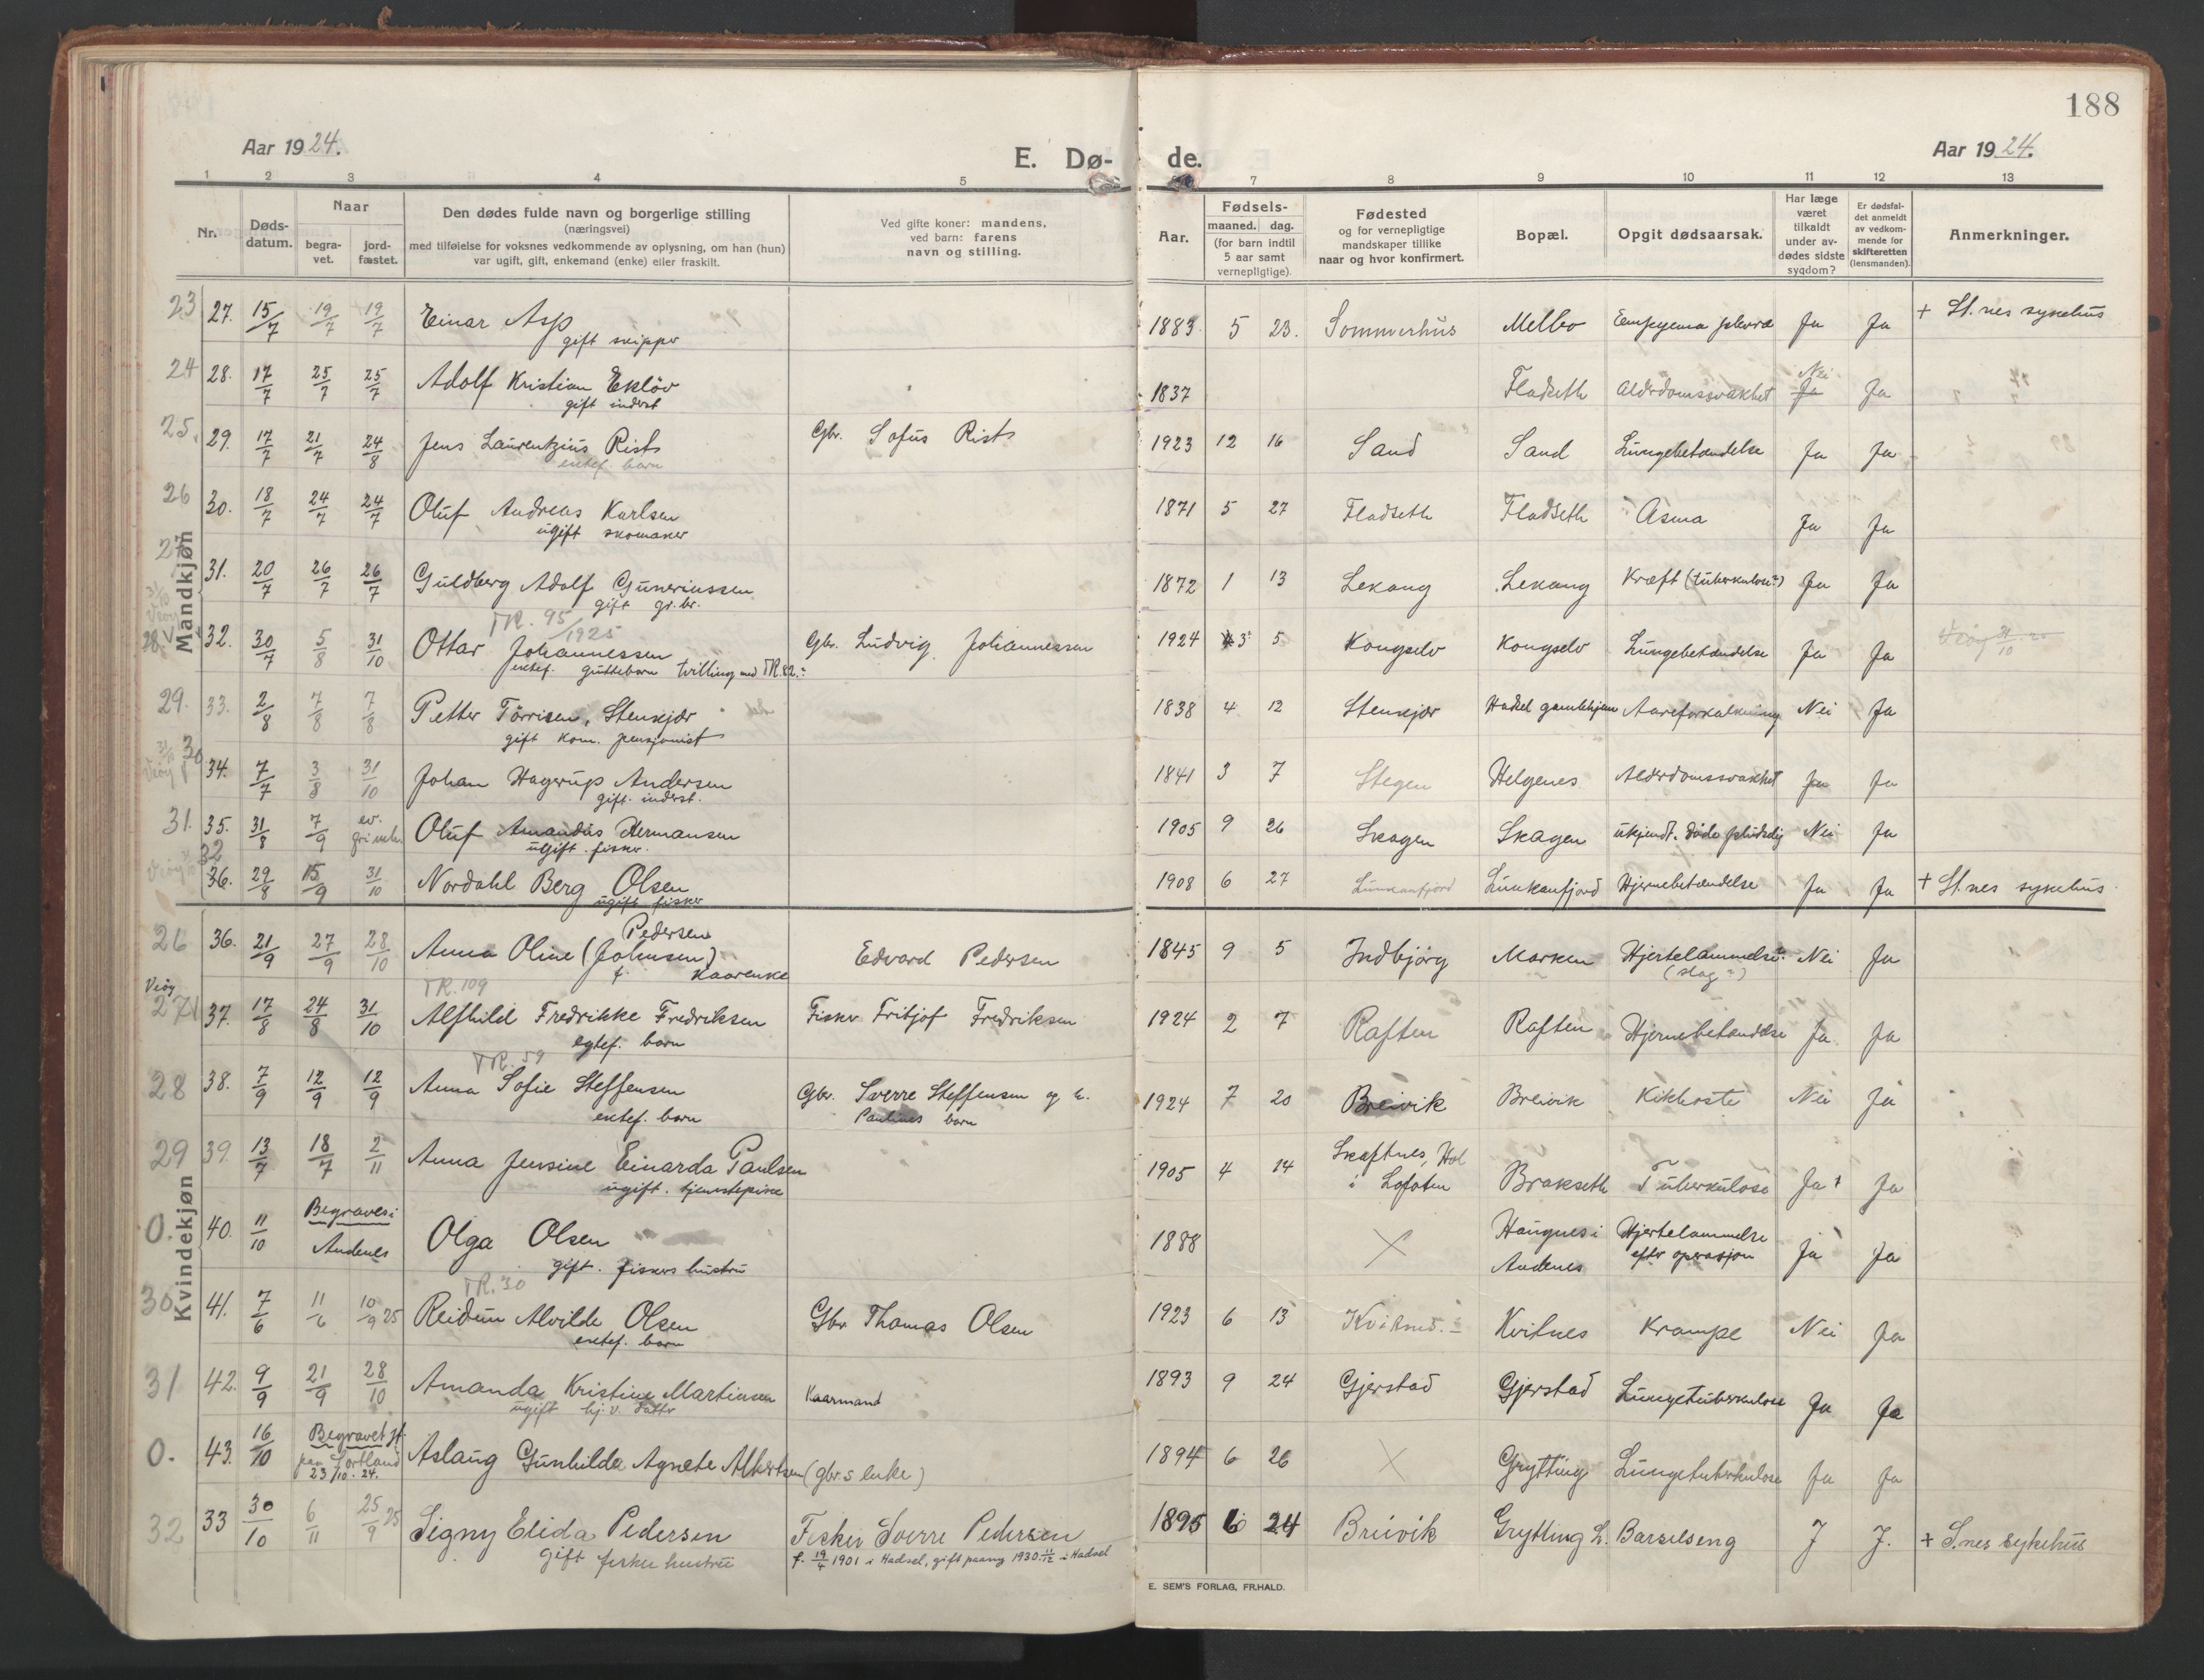 188
Aar 1924.
E. Dø-
de.
Aar 1924.
1 2 3 4 5 7 8 9 10 11 12 13
Nr.
Døds-
datum.
Naar
begra-
vet.
jord-
fæstet.
Den dødes fulde navn og borgerlige stilling
(næringsvei)
med tilføielse for voksnes vedkommende av oplysning, om han (hun)
var ugift, gift, enkemand (enke) eller fraskilt.
Ved gifte koner: mandens,
ved barn: farens
navn og stilling.
Aar.
Fødsels-
maaned. dag.
(for barn indtil
5 aar samt
vernepligtige).
Fødested
og for vernepligtige
mandskaper tillike
naar og hvor konfirmert.
Bopæl.
Opgit dødsaarsak.
Har læge
været
tilkaldt
under av-
dødes sidste
sygdom?
Er dødsfal-
det anmeldt
av vedkom-
mende for
skifteretten
(lensmanden).
Anmerkninger.
Mandkjøn
23 27. 15/7 19/7 19/7 Einar Asp 1883 5 23. Sommerhus Melbo Empyema pleura Ja Ja + St.nes sykehus
gift skipper
24 28. 17/7 25/7 25/7 Adolf Kristian Ekløv 1837 Fladseth Alderdomssvakhet Nei Ja Ja
gift inderst
25. 29. 17/7 21/7 24/8 Jens Laurentzius Rist Gbr. Sofus Rist 1923 12 16 Sand Sand Lungebetændelse Ja Ja
ektef. barn
26 30. 18/7 24/7 24/7 Oluf Andreas Karlsen 1871 5 27 Fladseth Fladseth Asma Ja Ja
ugift skomaker
27 31. 20/7 26/7 26/7 Guldberg Adolf Guneriussen 1872 1 13 Lekang Lekang Kræft (tuberkulose?) Ja Ja
gift gr.br.
TR. 95/1925
28. 32. 30/7 5/8 31/10 Ottar Johannessen Gbr. Ludvig Johannessen 1924 3 5 Kongselv Kongselv Lungebetændelse Ja Ja
ektef. guttebarn tvilling med TR. 82.
29. 33. 2/8 7/8 7/8 Petter Tørrisen, Stenkjær 1838 4 12 Stenkjær Hadsel gamlehjem Aareforkalkning Nei Ja
gift kom. pensjonist
30 34. 7/7 3/8 31/10 Johan Hagerup Andersen 1841 3 7 Stegen Helgenes Alderdomssvakhet Ja Ja
gift. inderst.
31. 35. 31/8 7/9 Oluf Amandus Hermansen 1905 9 26 Skagen Skagen ukjendt. Døde pludselig Nei Ja
ugift. fisker.
32 36. 29/8 15/9 31/10 Nordahl Berg Olsen 1908 6 27 Lunkanfjord Lunkanfjord Hjernebetændelse Ja Ja + St.nes sykehus
ugift fisker
Kvindekjøn
Pedersen
26 36. 21/9 27/9 28/10 Anna Oline (Johnsen) Edvard Pedersen 1845 9 5 Indbjørg Marken Hjertelammelse Nei Ja
f. Kaarenke (slag?)
TR. 109
27 37. 17/8 24/8 31/10 Alfhild Fredrikke Fredriksen Fisker Fritjof Fredriksen 1924 2 7 Raften Raften Hjernebetændelse Ja Ja
egtef. barn
TR. 59
28 38. 7/9 12/9 12/9 Anna Sofie Steffensen Gbr. Sverre Steffensen og h. 1924 7 20 Breivik Breivik Kikhoste Nei Ja
ektef. barn Paulines barn
29 39. 13/7 18/7 2/11 Anna Jensine Einarda Paulsen 1905 4 14 Skaftnes, Hol i Lofoten Brakseth Tuberkulose Ja Ja
ugift. tjenestepike
0. 40. 11/10 Begraves i Andenes Olga Olsen 1888 Haugnes i Andenes Hjertelammelse efter operasjon Ja Ja
gift. fiskers hustru
TR. 30
30 41. 7/6 11/6 10/9 25 Reidun Alvilde Olsen Gbr Thomas Olsen 1923 6 13 Kvitnes Kvitnes Krampe Nei Ja
ektef. barn
31 42. 9/9 21/9 28/10 Amanda Kristine Martinsen Kaarmand 1893 9 24 Gjerstad Gjerstad Lungetuberkulose Ja Ja
ugift hj.v. datter
0. 43. 16/10 Begravet paa Sortland 23/10. 24. Aslaug Gunhilda Agnete Albertsen (gbrs enke) 1894 6 26 Grytting Lungetuberkulose Ja Ja
32 33 30/10 6/11 25/9 25 Signy Elida Pedersen Fisker Sverre Pedersen 1895 6 24 Breivik Grytting L. Barselseng J J. + S.nes sykehus
Gift fisker hustru f. 19/4 1901 i Hadsel, gift paany 1930 11/12 i Hadsel
E. SEM'S FORLAG, FR.HALD.